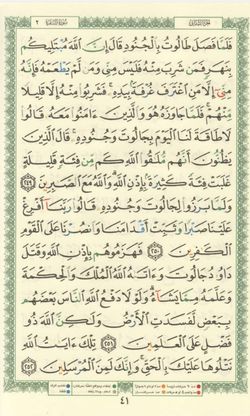 فَلَمَّا فَصَلَ طَالُوتُ بِالْجُنُودِ قَالَ إِنَّ اللَّهَ مُبْتَلِيكُم
بِنَهَرٍ فَمَن شَرِبَ مِنْهُ فَلَيْسَ مِنِّي وَمَن لَّمْ يَطْعَمْهُ فَإِنَّهُ
مِنِّي إِلَّا مَنِ اغْتَرَفَ غُرْفَةً بِيَدِهِ ۚ فَشَرِبُوا مِنْهُ إِلَّا قَلِيلًا
مِّنْهُمْ ۚ فَلَمَّا جَاوَزَهُ هُوَ وَالَّذِينَ ءَامَنُوا مَعَهُ قَالُوا
لَا طَاقَةَ لَنَا الْيَوْمَ بِجَالُوتَ وَجُنُودِهِ ۚ قَالَ الَّذِينَ
يَظُنُّونَ أَنَّهُم مُّلَاقُو اللَّهِ كَم مِّن فِئَةٍ قَلِيلَةٍ
غَلَبَتْ فِئَةً كَثِيرَةً بِإِذْنِ اللَّهِ ۗ وَاللَّهُ مَعَ الصَّابِرِينَ ٢٤٩
وَلَمَّا بَرَزُوا لِجَالُوتَ وَجُنُودِهِ قَالُوا رَبَّنَا أَفْرِغْ
عَلَيْنَا صَبْرًا وَثَبِّتْ أَقْدَامَنَا وَانصُرْنَا عَلَى الْقَوْمِ
الْكَافِرِينَ ٢٥٠ فَهَزَمُوهُم بِإِذْنِ اللَّهِ وَقَتَلَ
دَاوُدُ جَالُوتَ وَءَاتَاهُ اللَّهُ الْمُلْكَ وَالْحِكْمَةَ
وَعَلَّمَهُ مِمَّا يَشَاءُ ۗ وَلَوْلَا دَفْعُ اللَّهِ النَّاسَ بَعْضَهُم
بِبَعْضٍ لَّفَسَدَتِ الْأَرْضُ وَلَٰكِنَّ اللَّهَ ذُو
فَضْلٍ عَلَى الْعَالَمِينَ ٢٥١ تِلْكَ ءَايَاتُ اللَّهِ
نَتْلُوهَا عَلَيْكَ بِالْحَقِّ ۚ وَإِنَّكَ لَمِنَ الْمُرْسَلِينَ ٢٥٢
٤١